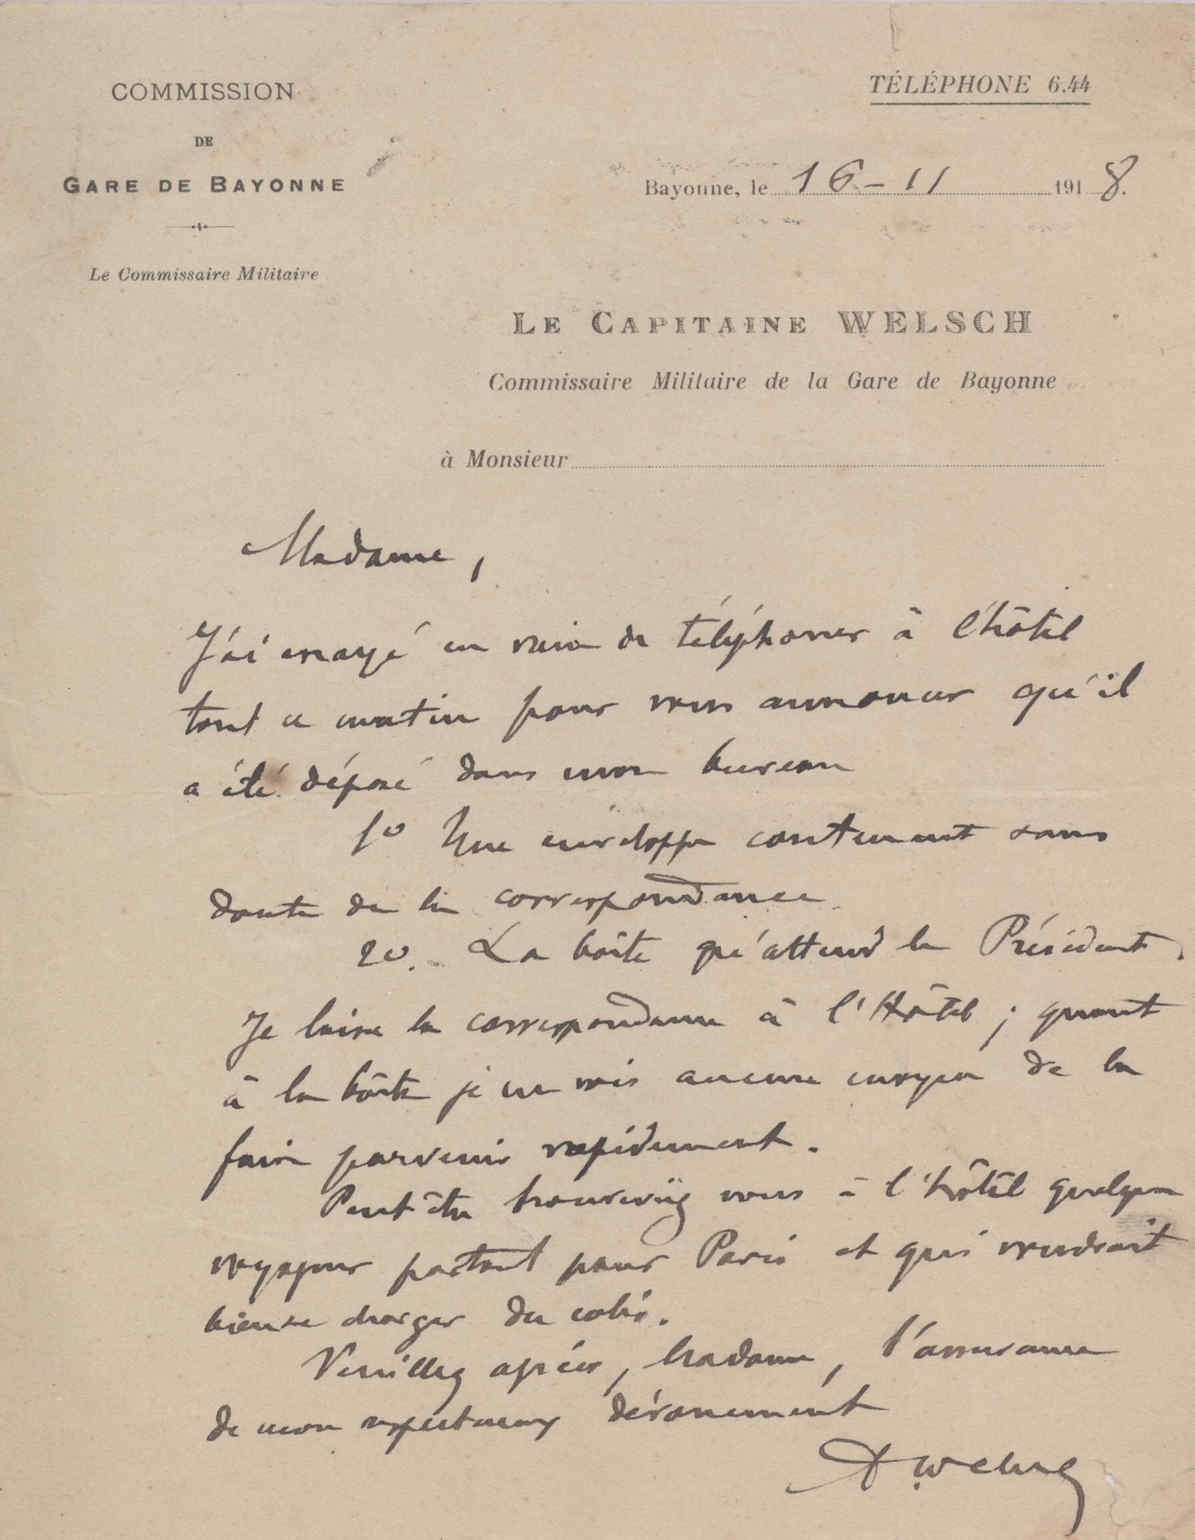 COMMISSION
DE
GARE DE BAYONNE
Le Commissaire Militaire
TÉLÉPHONE 6.44
Bayonne, le 16-11 1918.
LE CAPITAINE WELSCH
Commissaire Militaire de la Gare de Bayonne
à Monsieur
Madame,
J'ai essayé en vain de téléphoner à l'hôtel
tout ce matin pour vous annoncer qu'il
a été déposé dans mon bureau
1º Une enveloppe contenant sans
doute de la correspondance
2º. La boîte qu'attend le Président.
Je laisse la correspondance à l'Hôtel ; quant
à la boîte je ne vois aucun moyen de la
faire parvenir rapidement.
Peut être trouverez vous à l'hôtel quelque
voyageur partant pour Paris et qui voudrait
bien se charger du colis.
Veuillez agréer, Madame, l'assurance
de mon respectueux dévouement
A Welsch